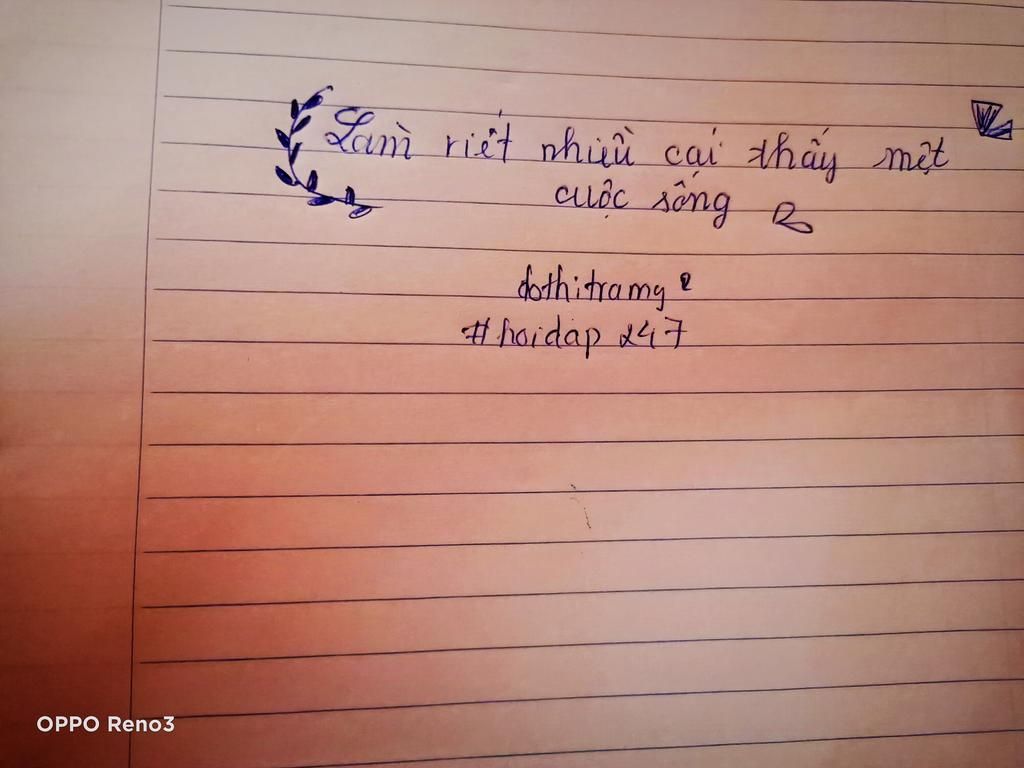 Làm riết nhiều cái thấy mệt
cuộc sống
dothitramy2
#hoidap 247
OPPO Reno3